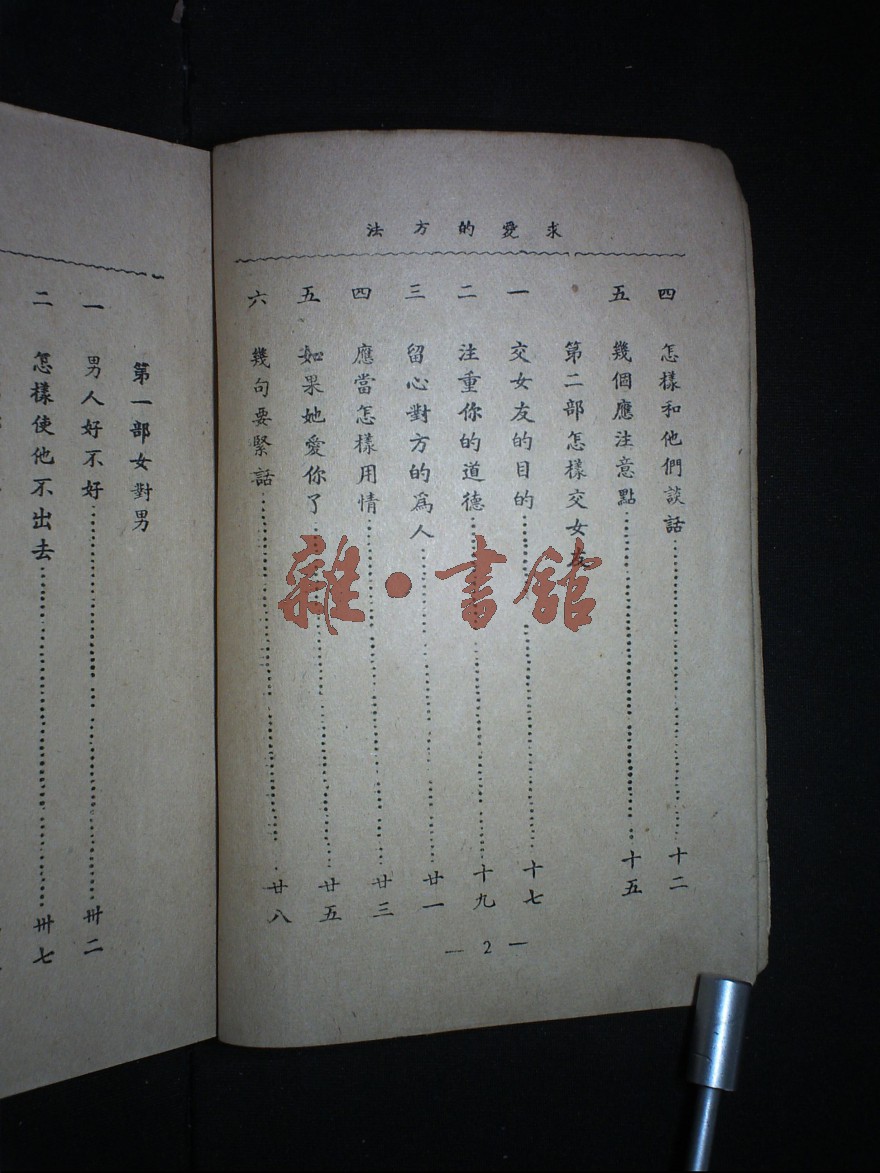 求愛的方法
四 怎樣和他們談話 十二
五 幾個應注意點 十五
第二部怎樣交女友
一 交女友的目的 十七
二 注重你的道德 十九
三 留心對方的爲人 廿一
四 應當怎樣用情 廿三
五 如果她愛你了 廿五
六 幾句要緊話 廿八
— 2 —
第一部女對男
一 男人好不好 卅二
二 怎樣使他不出去 卅七
雜·書館